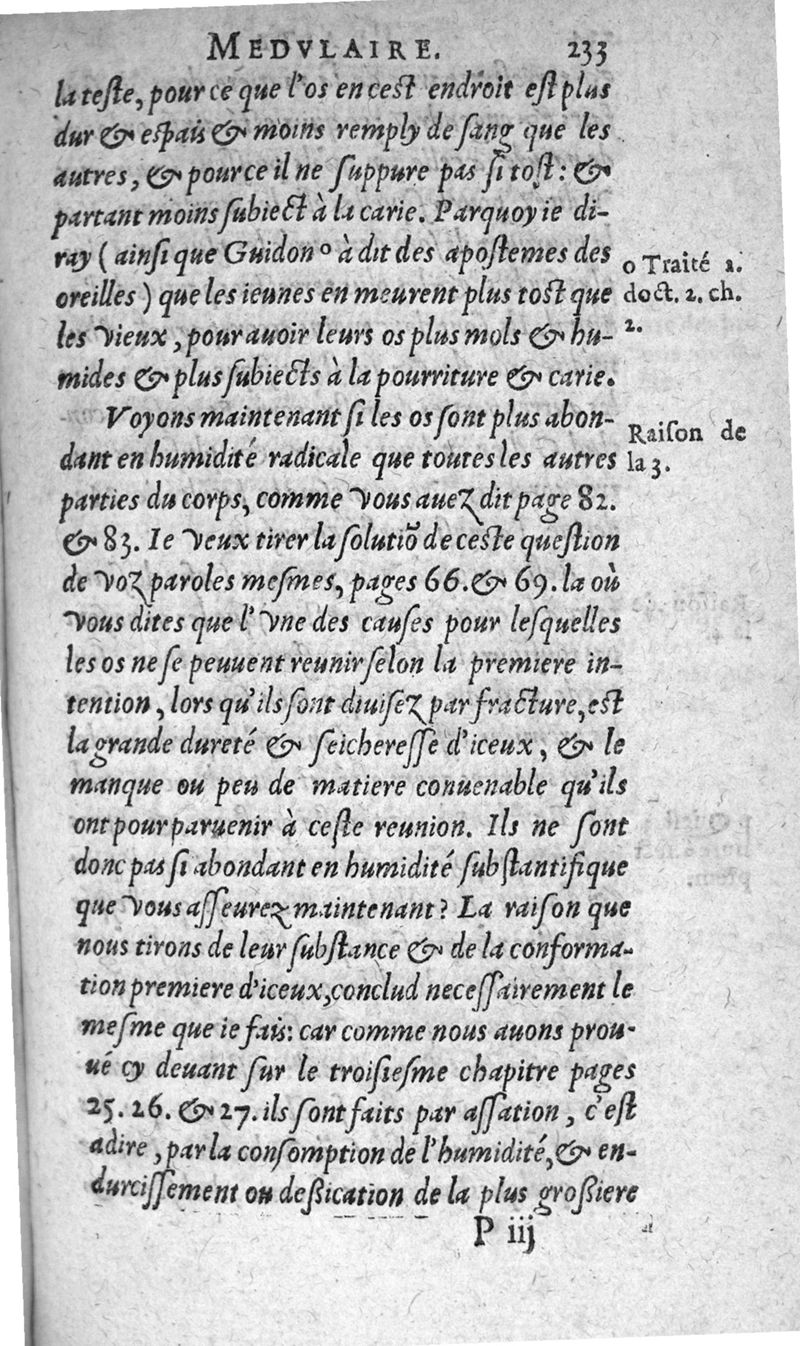 MEDVLAIRE. 233
la teſte, pour ce que l'os en ceſt endroit eſt plus
dur & eſpais & moins remply de ſang que les
autres, & pource il ne ſuppure pas ſi toſt: &
partant moins ſubiect à la carie. Parquoy ie di-
ray ( ainſi que Guidon o à dit des apoſtemes des
oreilles ) que les ieunes en meurent plus toſt que
les vieux, pour auoir leurs os plus mols & hu-
mides & plus ſubiects à la pourriture & carie.
o Traité 2.
doct. 2. ch.
2.
Voyons maintenant ſi les os ſont plus abon-
dant en humidité radicale que toutes les autres
parties du corps, comme vous auez dit page 82.
& 83. Ie veux tirer la ſolutiõ de ceſte queſtion
de voz paroles meſmes, pages 66. & 69. la où
vous dites que l'vne des cauſes pour leſquelles
les os ne ſe peuuent reunir ſelon la premiere in-
tention, lors qu'ils ſont diuiſez par fracture, eſt
la grande dureté & ſeichereſſe d'iceux, & le
manque ou peu de matiere conuenable qu'ils
ont pour paruenir à ceſte reunion. Ils ne ſont
donc pas ſi abondant en humidité ſubſtantifique
que vous aſſeurez maintenant? La raiſon que
nous tirons de leur ſubſtance & de la conforma-
tion premiere d'iceux, conclud neceſſairement le
meſme que ie fais: car comme nous auons prou-
ué cy deuant ſur le troiſieſme chapitre pages
25. 26. & 27. ils ſont faits par aſſation, c'eſt
adire, par la conſomption de l'humidité, & en-
durciſſement ou deſſication de la plus groſſiere
Raiſon de
la 3.
P iij